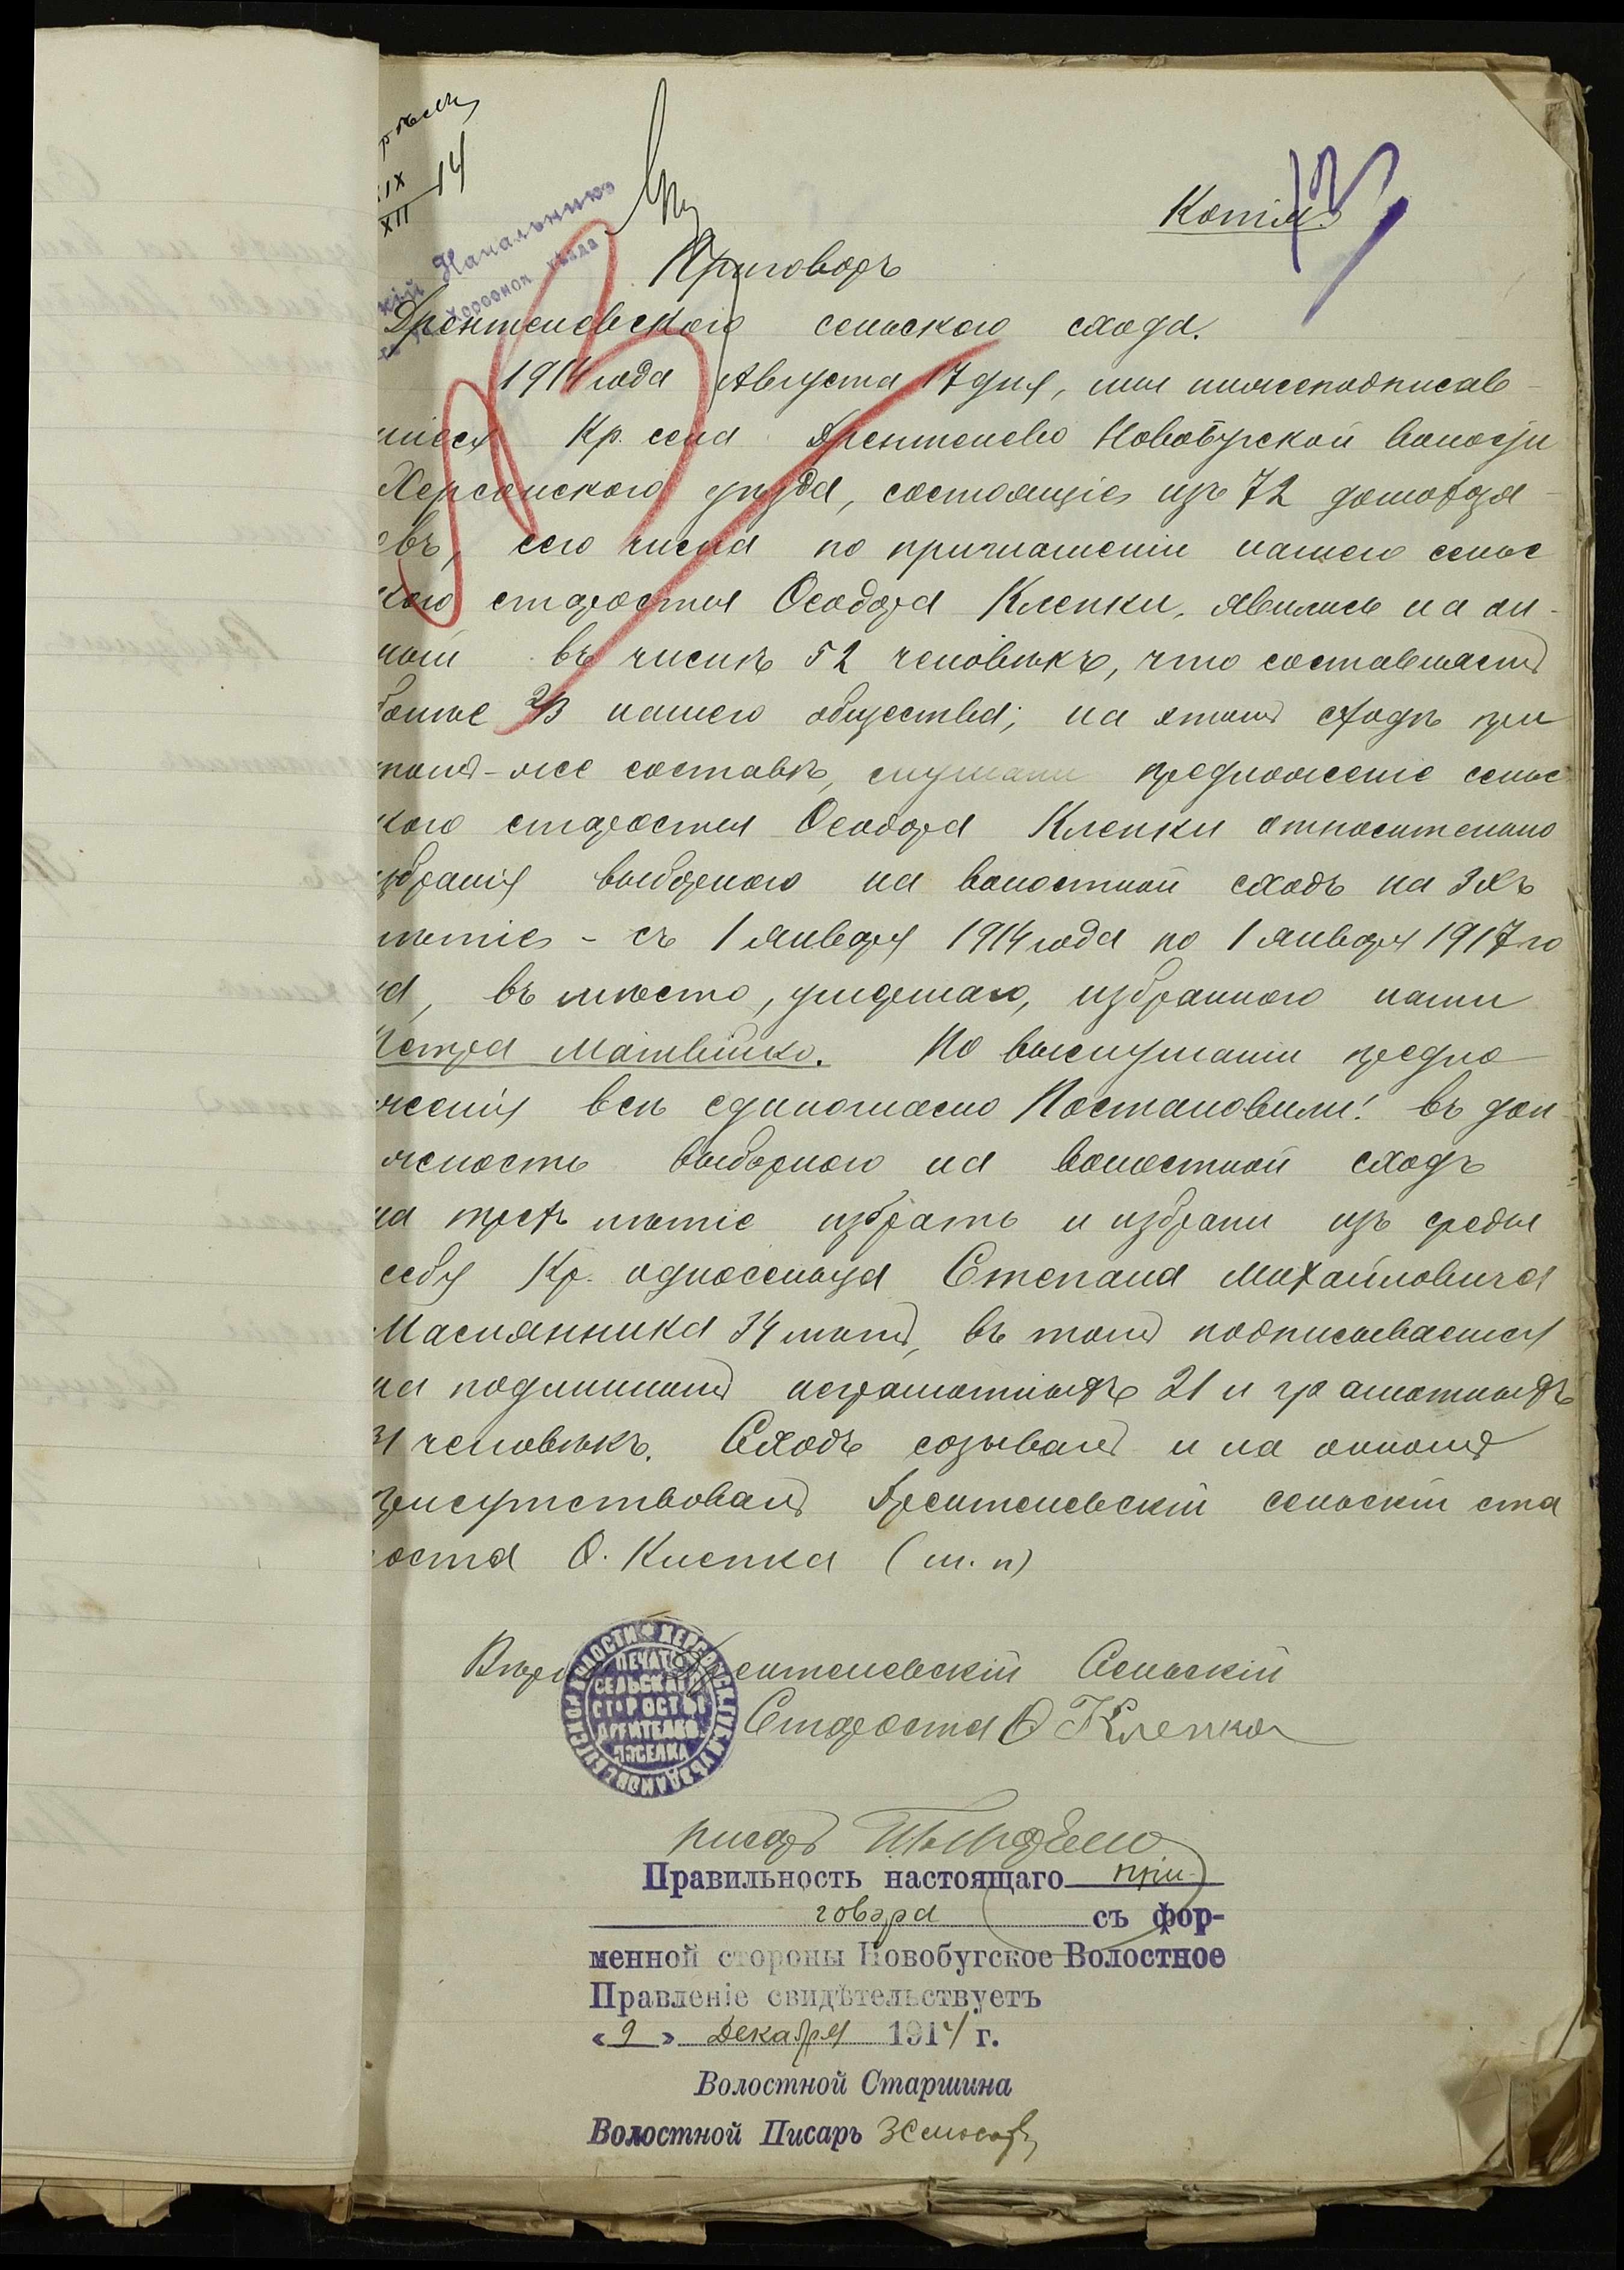 IX
XII 14
кій Начальникъ
Херсонск уѣзда
Копія.
Приговоръ
Дрентелевского сельского схода.
1914 года Августа 17 дня, мы нижеподписав-
шіеся Кр. села Дрентелево Новобугской волости
Херсонского уѣзда, состоящіе изъ 72 домохозя-
евъ, сего числа по приглашенію нашего сельс
кого старосты Ѳеодора Клепки, явились на он-
ный въ числѣ 52 человѣкъ, что составляетъ
более 2/3 нашего общества; на этомъ сходѣ при
томъ-же составѣ, слушали предложеніе сельс
кого старосты Ѳеодора Клепки относительно
избранія выборного на волостной сходъ на 3хъ
лѣтіе - съ 1 января 1914 года по 1 января 1917 го
да, въ мѣсто, умершаго, избранного нами
Петра Матвѣйко. По выслушаніи предло
женія всѣ единогласно Постановили! въ дол
жность выборного на волостной сходъ
на трехъ лѣтіе избрать и избрали изъ среды
себя Кр. односельца Степана Михайловича
Маслянника 34 лѣтъ, въ томъ подписываемся
на подлинномъ неграмотныхъ 21 и грамотныхъ
31 человѣкъ. Сходъ созывалъ и на ономъ
присутствовалъ Дрентелевскій сельскій ста
роста Ѳ. Клепка (м. п)
Вѣрно: Дрентелевскій Сельскій
Староста Ѳ Клепка
ПЕЧАТЬ
СЕЛЬСКАГО
СТАРОСТЫ
ПОСЕЛКА
писарь
Правильность настоящаго при-
говора съ фор-
менной стороны Новобугское Волостное
Правленіе свидѣтельствуетъ
«9» Декабря 1914 г.
Волостной Старшина
Волостной Писарь